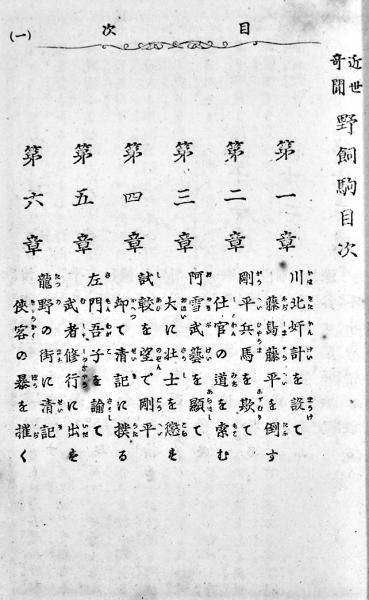 目次
(一)
近世
奇聞
野飼駒目次
第一章
川北奸計を設て
藤島藤平を倒す
第二章
剛平兵馬を欺て
仕官の道を索む
第三章
阿雪武藝を顯して
大に壮士を懲す
第四章
試毂を望で剛平
却て清記に撲る
第五章
左門吾子を諭して
武者修行に出す
第六章
龍野の街に清記
俠客の暴を摧く